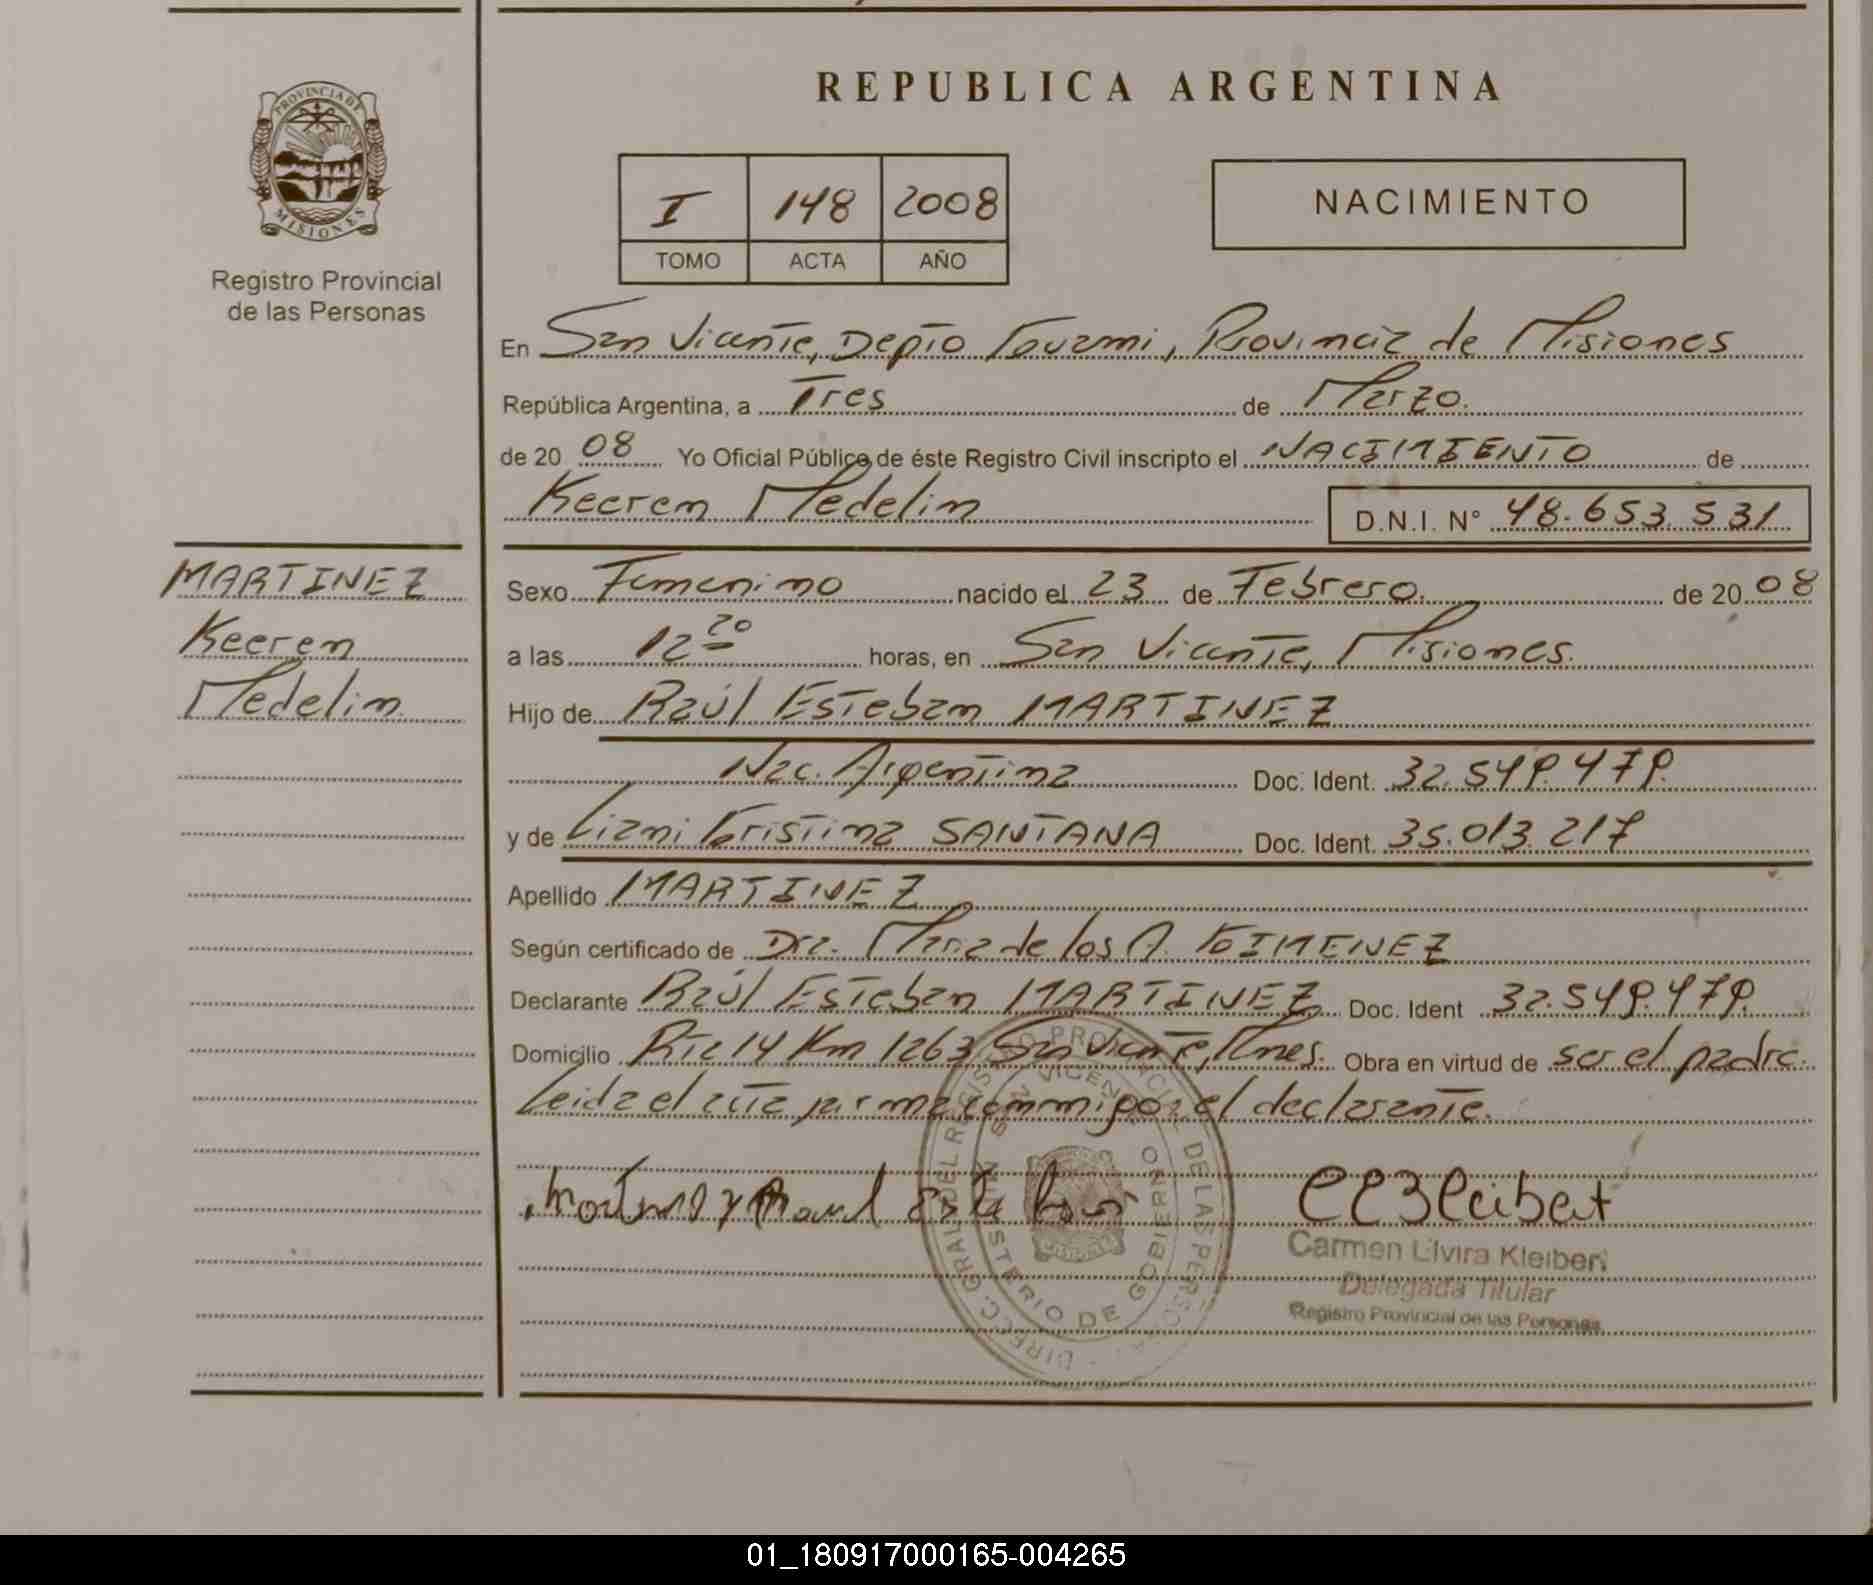 REPUBLICA ARGENTINA
PROVINCIA DE MISIONES
Registro Provincial
de las Personas
I 148 2008
TOMO ACTA AÑO
NACIMIENTO
En San Vicente, Depto Guarani, Provincia de Misiones
República Argentina, a Tres de Marzo.
de 20 08 Yo Oficial Público de éste Registro Civil inscripto el NACIMIENTO de
Keeren Medelin D.N.I. N° 48.653.531
MARTINEZ
Keeren
Medelin
Sexo Femenino nacido el 23 de Febrero. de 20 08
a las 12 20 horas, en San Vicente, Misiones.
Hijo de Raúl Esteban MARTINEZ
Nac. Argentina Doc. Ident. 32.549.479.
y de Liani Cristina SANTANA Doc. Ident. 35.013.217
Apellido MARTINEZ
Según certificado de Dra. Maria de los A. GIMENEZ
Declarante Raúl Esteban MARTINEZ Doc. Ident 32.549.479.
Domicilio Rta 14 Km 1263 San Vicente, Mnes. Obra en virtud de ser el padre.
Leida el acta firma conmigo el declarante.
Carmen Elvira Kleibert
Delegada Titular
Registro Provincial de las Personas
DIRECC. GRAL. DEL REGISTRO PROVINCIAL DE LAS PERSONAS
SAN VICENTE
MINISTERIO DE GOBIERNO
01_180917000165-004265